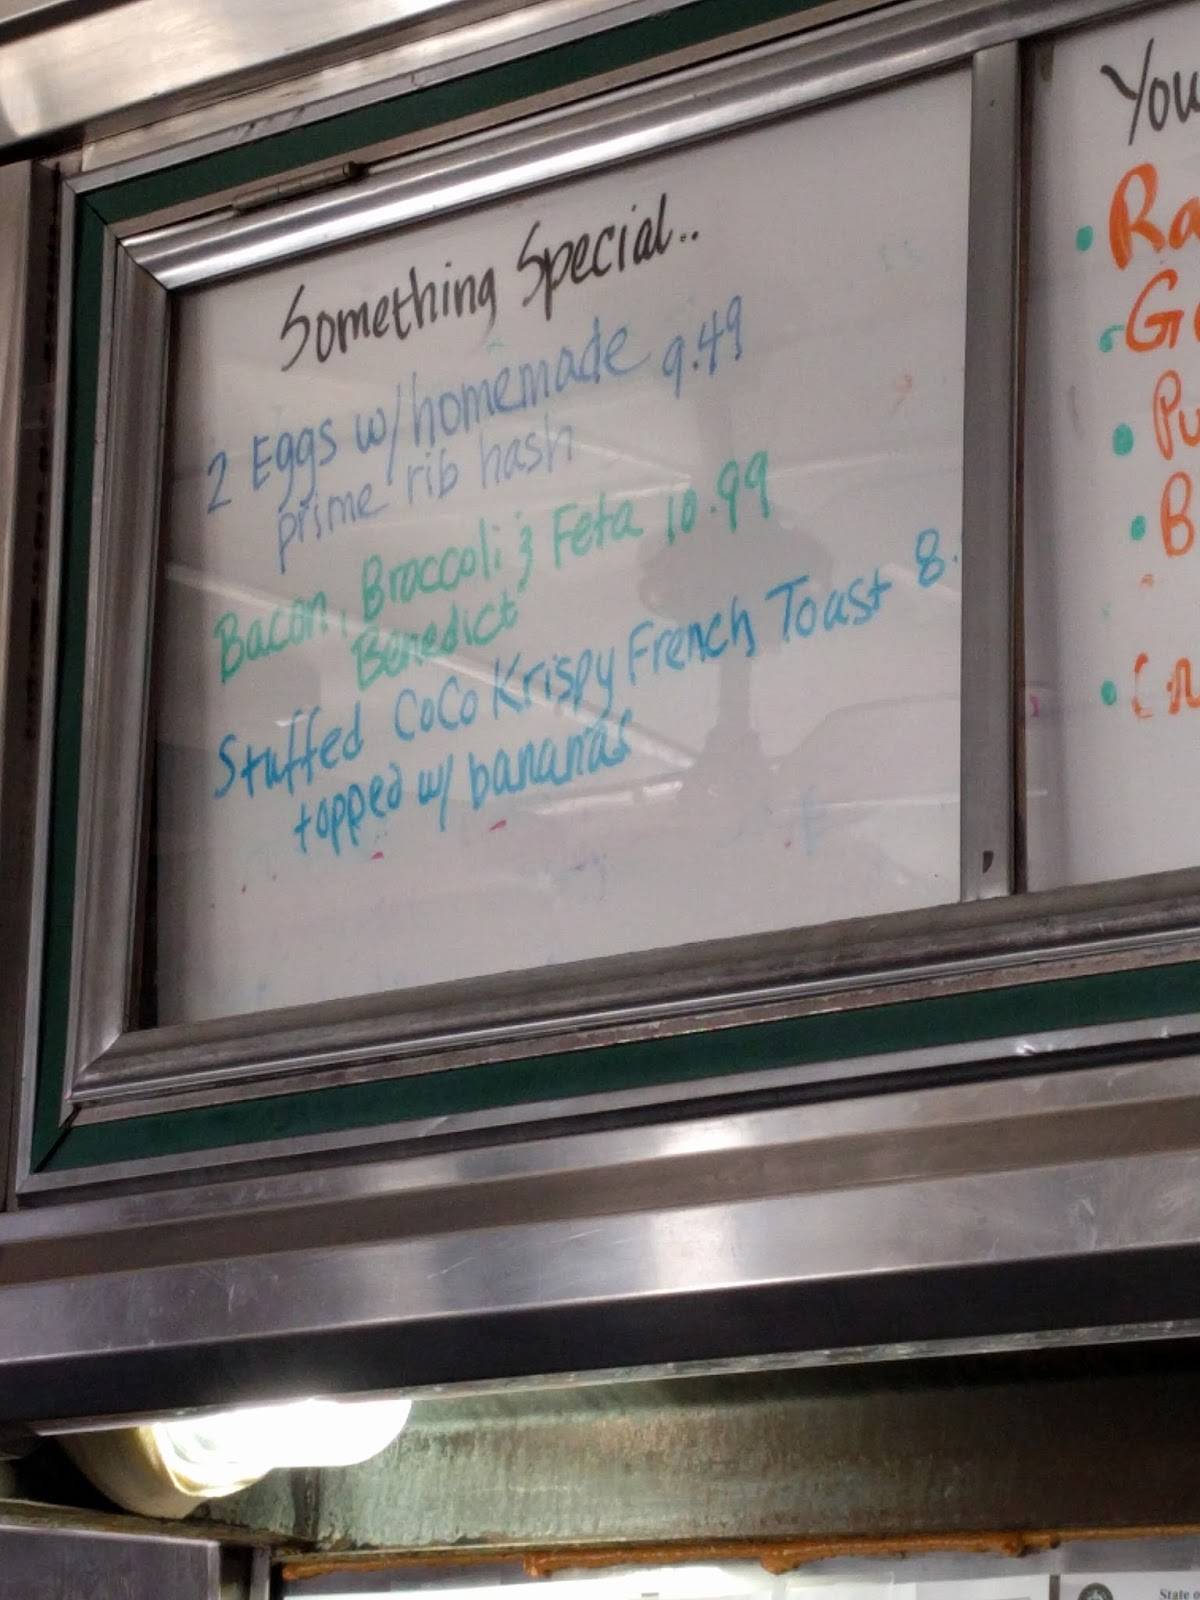 Something Special..
2 Eggs w/ homemade 9.49
prime rib hash
Bacon, Broccoli & Feta 10.99
Benedict
Stuffed CoCo Krispy French Toast 8.
topped w/ bananas
You
• Ra
• G
• Pu
• B
State o